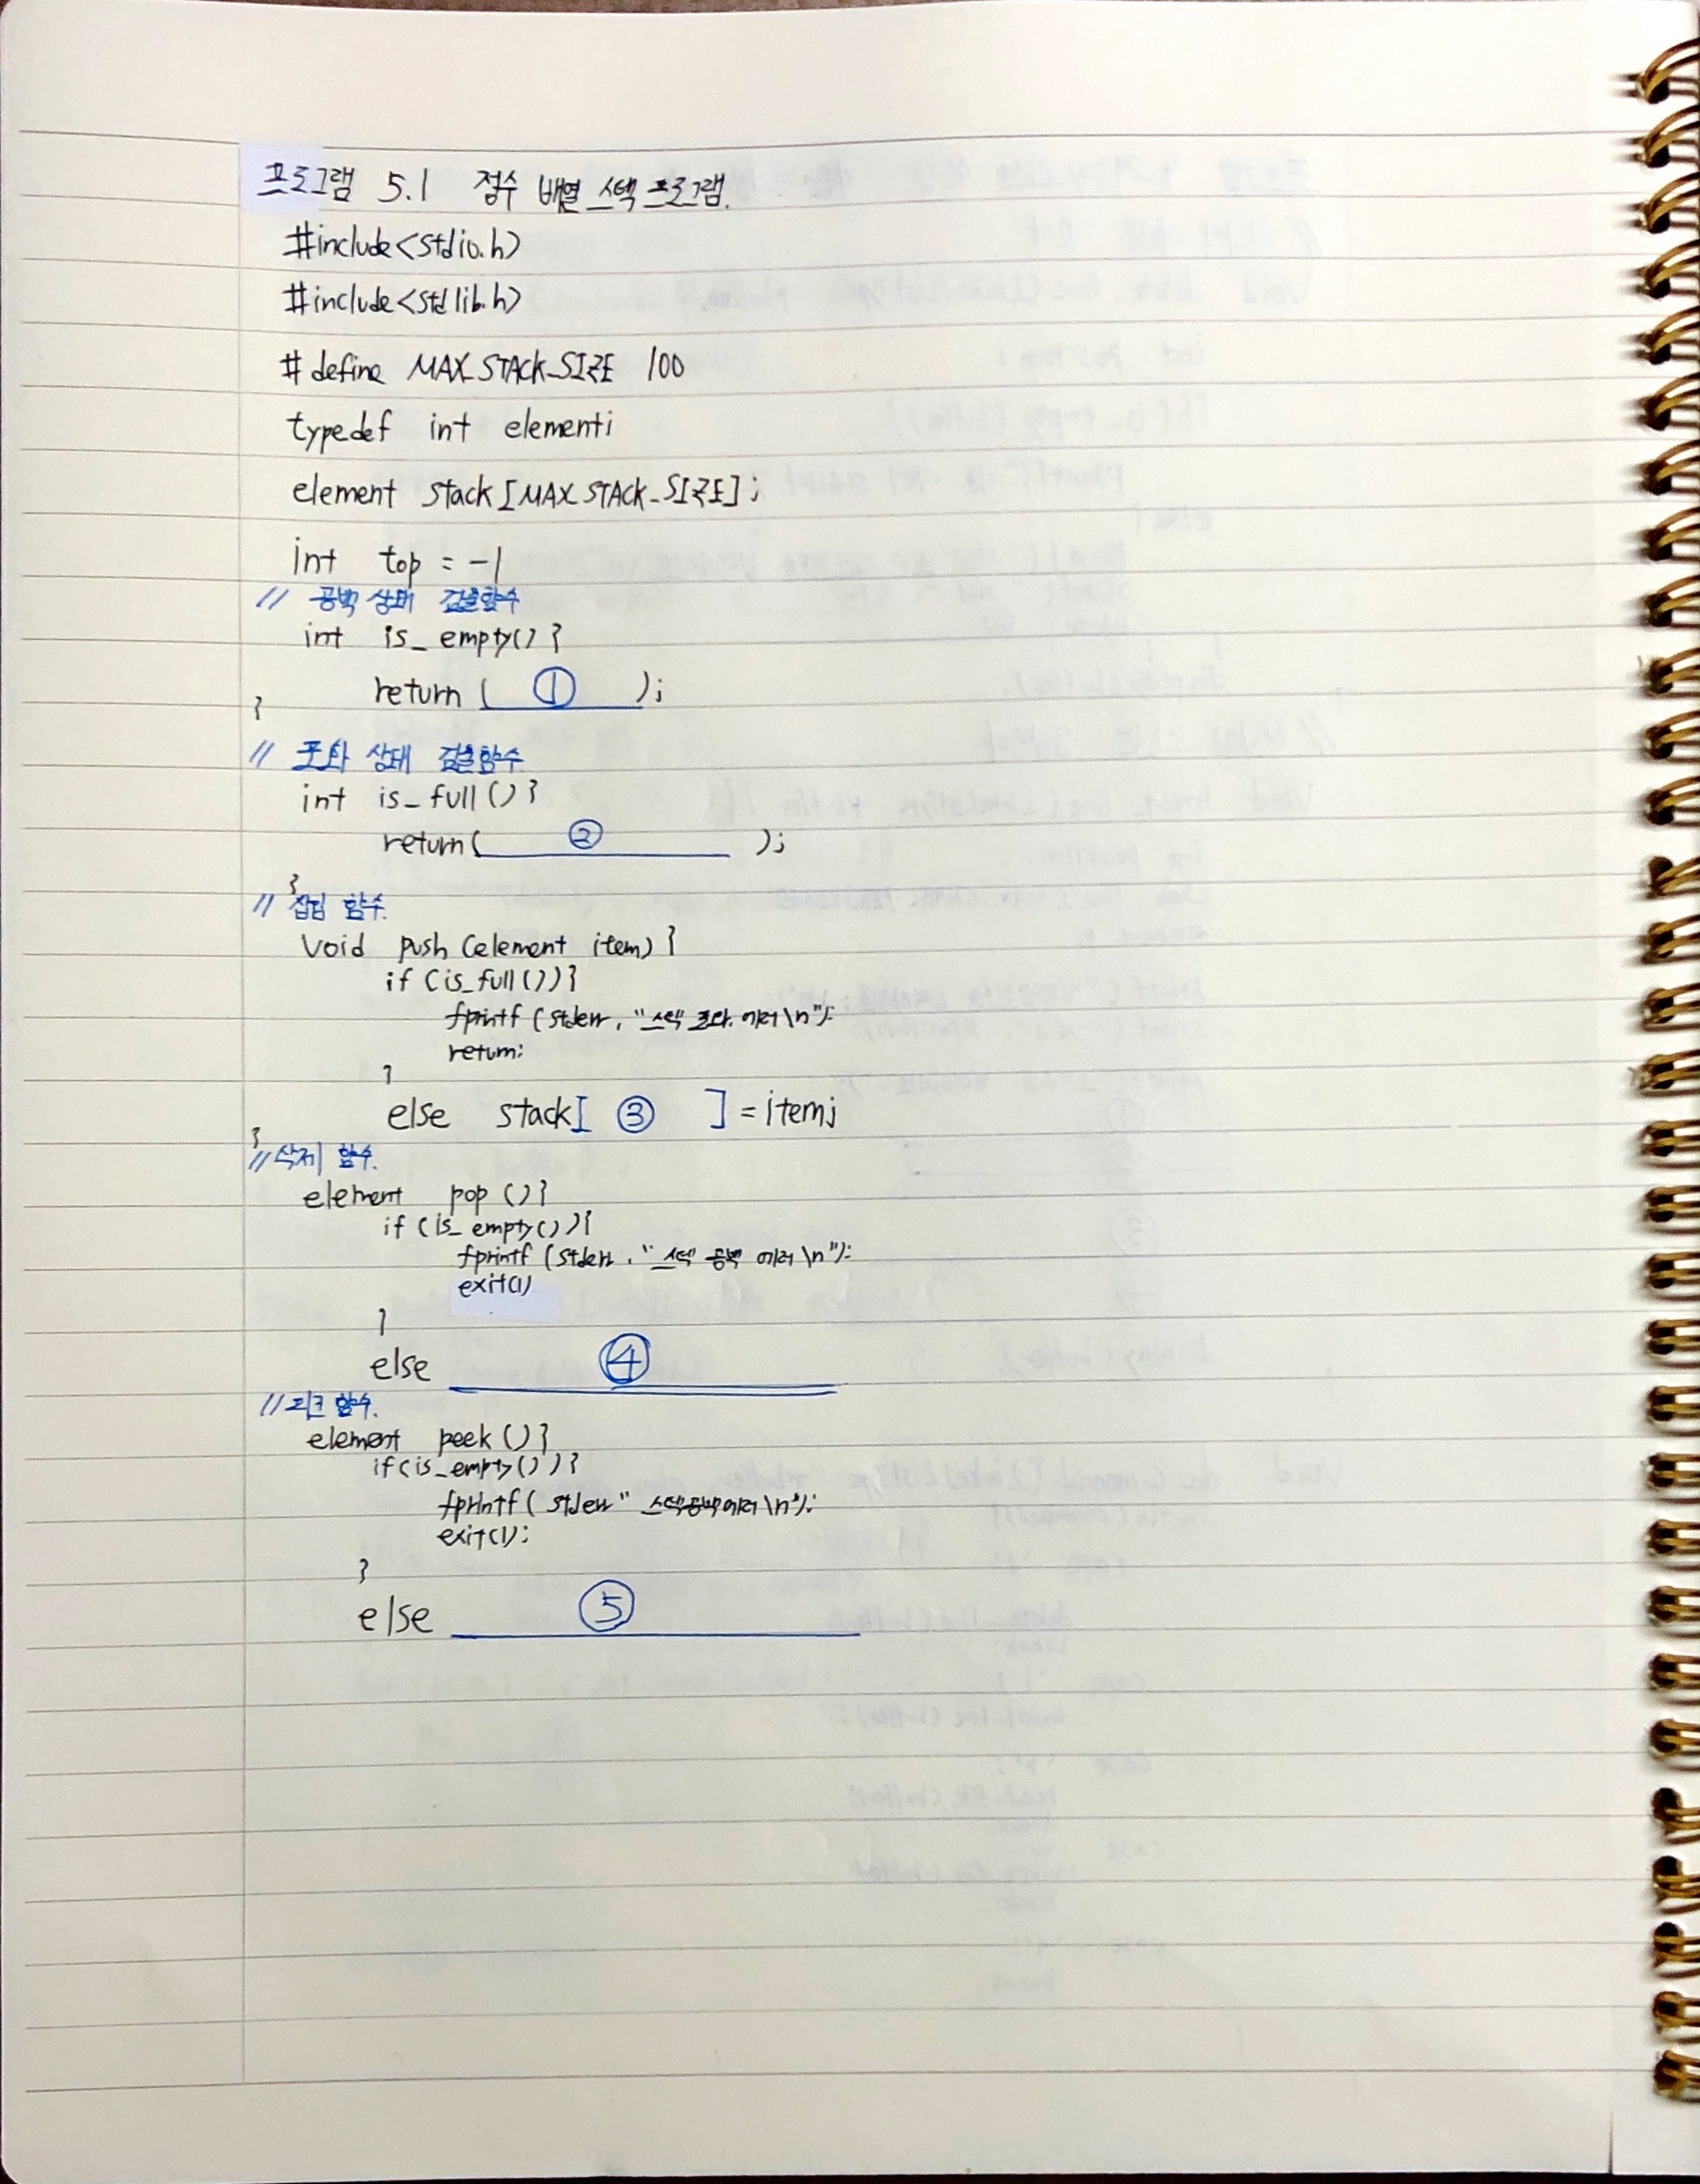 프로그램 5.1 정수 배열 스택 프로그램.
#include<stdio.h>
#include<stdlib.h>
#define MAX_STACK_SIZE 100
typedef int element;
element stack[MAX_STACK_SIZE];
int top = -1
// 공백 상태 검출함수
int is_empty(){
return ( ① );
}
// 포화 상태 검출함수
int is_full(){
return( ② );
}
// 삽입 함수.
void push (element item) {
if (is_full()){
fprintf (stderr, "스택 포화 에러\n");
return;
}
else stack[ ③ ] = item;
}
// 삭제 함수.
element pop (){
if (is_empty()){
fprintf (stderr, "스택 공백 에러\n");
exit(1)
}
else ④
// 피크 함수.
element peek (){
if(is_empty()){
fprintf( stderr" 스택공백에러\n");
exit(1);
}
else ⑤